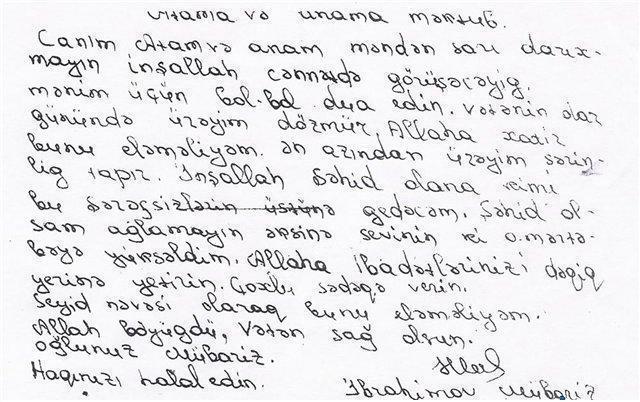 Atama və anama məktub.
Canım Atam və anam məndən sarı darıx-
mayın inşallah cənnətdə görüşəcəyig,
mənim üçün bol-bol dua edin. vətənin dar
günündə ürəyim dözmür, Allaha xatir
bunu eləməliyəm. ən azından ürəyim sərin-
lig tapır. İnşallah Şəhid olana kimi
bu şərəfsizlərin üstünə gedəcəm. Şəhid ol-
sam ağlamayın əksinə sevinin ki o mərtə-
bəyə yüksəldim. Allaha ibadətlərinizi dəqiq
yerinə yetirin. Çoxlu sədəqə verin.
Seyid nəvəsi olaraq bunu eləməliyəm.
Allah böyügdü, Vətən sağ olsun.
oğlunuz Mübariz.
Haqınızı halal edin. İbrahimov Mübariz